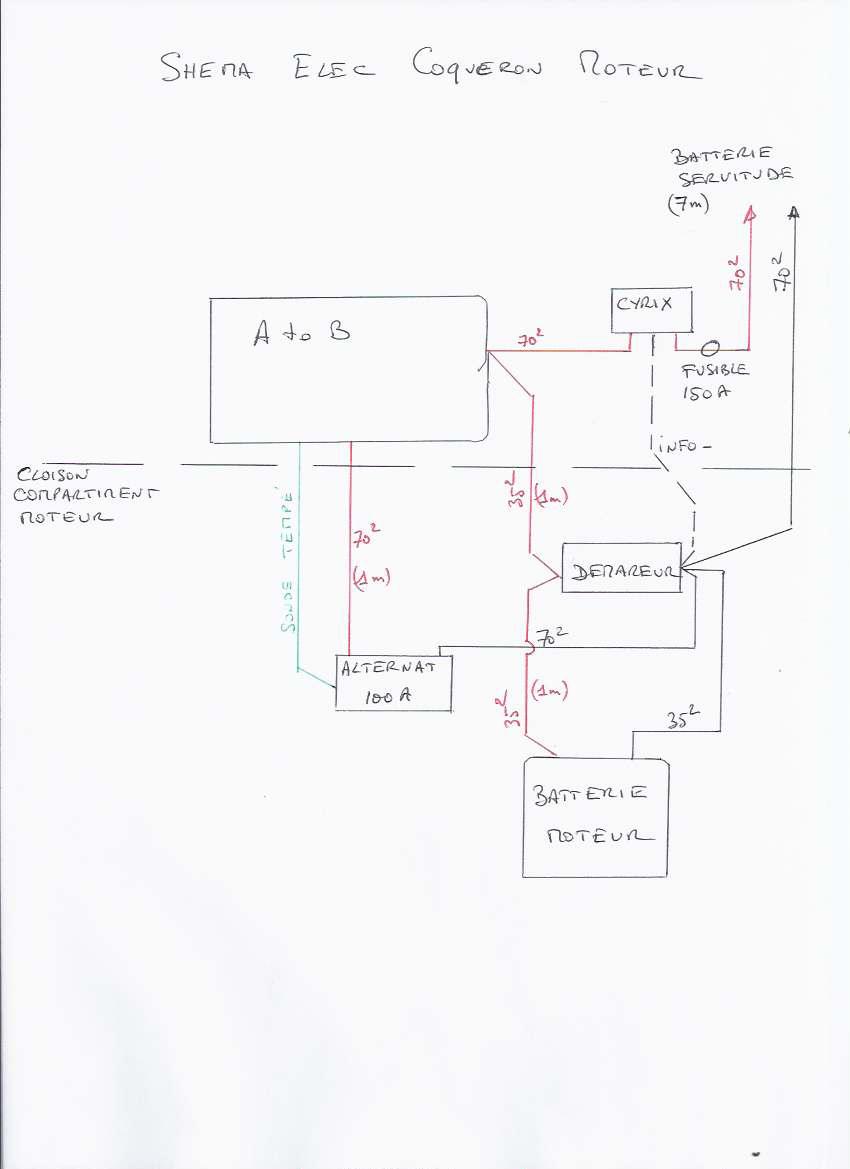 SHEMA ELEC COQUERON MOTEUR
BATTERIE
SERVITUDE
(7m)
70²
70²
CYRIX
A to B
70²
FUSIBLE
150 A
INFO -
CLOISON
COMPARTIMENT
MOTEUR
SONDE TEMPE
70²
(1m)
35²
(1m)
DEMAREUR
70²
ALTERNAT
100 A
35²
(1m)
35²
BATTERIE
MOTEUR